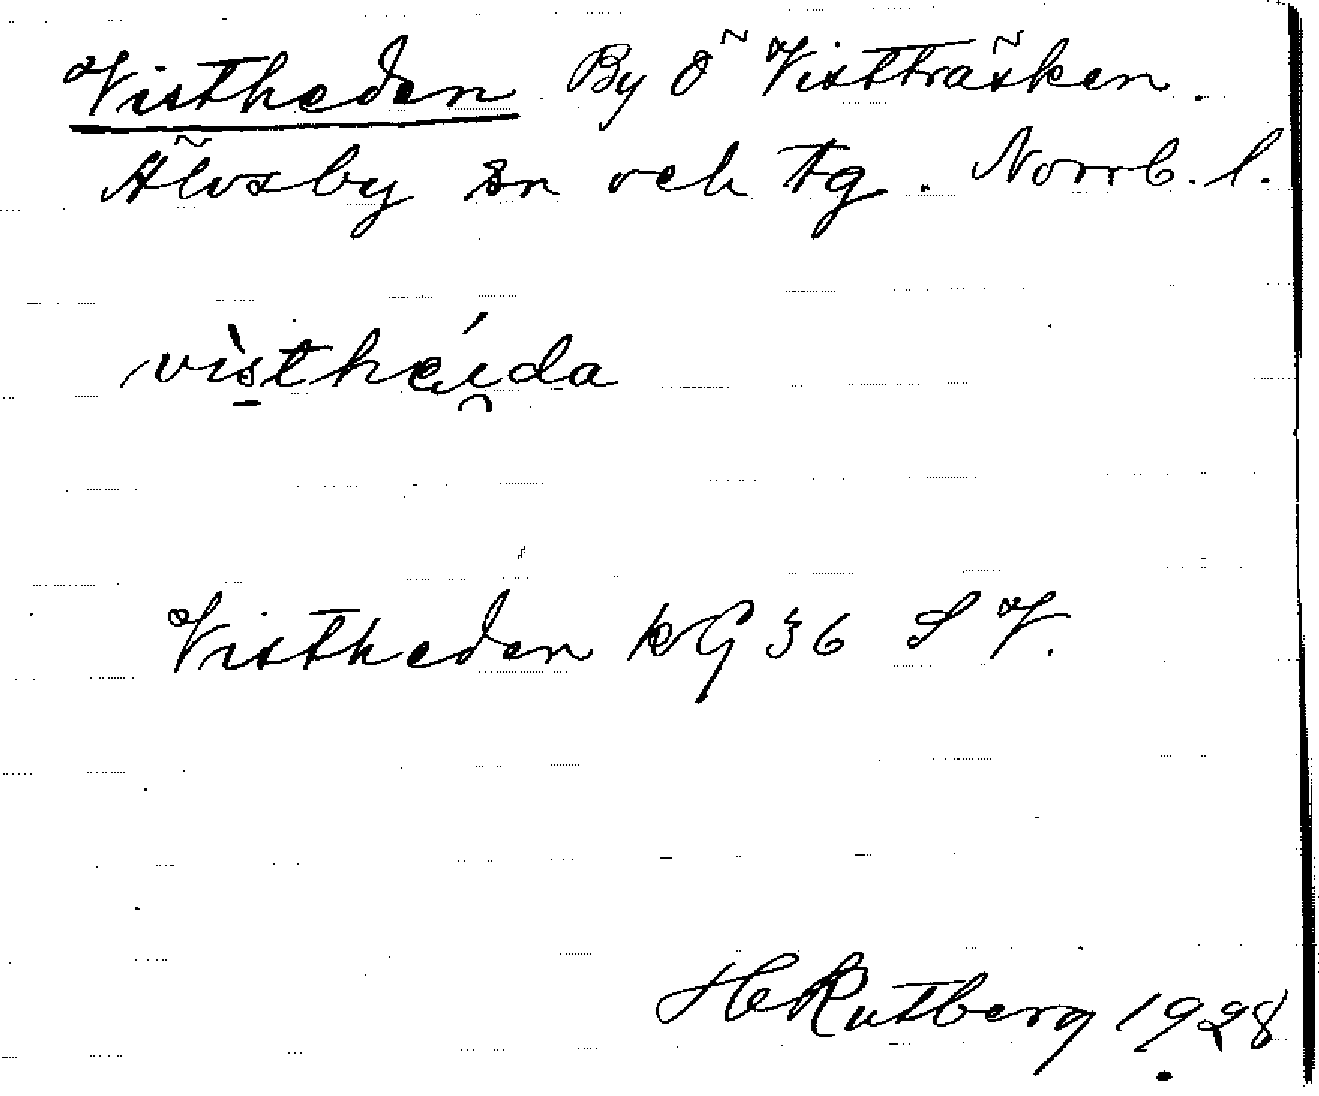 Vistheden By ö Vistträsken.
Älvsby sn och tg. Norrb. l.
vìsthéi̯da
Vistheden kG 36 SV.
H Rutberg 1928